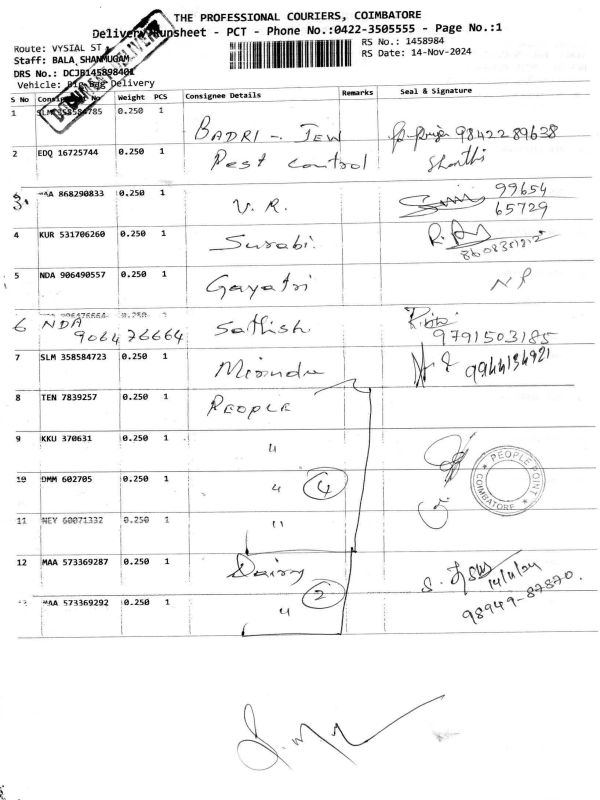 THE PROFESSIONAL COURIERS, COIMBATORE
Delivery Runsheet - PCT - Phone No.:0422-3505555 - Page No.:1
Route: VYSIAL ST
RS No.: 1458984
Staff: BALA SHANMUGAM
RS Date: 14-Nov-2024
DRS No.: DCJB145898401
Vehicle: Delivery
S No Weight PCS Consignee Details Remarks Seal & Signature
1 0.250 1 BADRI - JEW 9842289628
2 EDQ 16725744 0.250 1 Pest Control Shanthi
3. MAA 868290833 0.250 1 V. R. 99654
65729
4 KUR 531706260 0.250 1 Surabi.
5 NDA 906490557 0.250 1 Gayatri NP
6 NDA 0.250 1 Sathish
906476664 9791503185
7 SLM 358584723 0.250 1 9944134921
8 TEN 7839257 0.250 1 PEOPLE
9 KKU 370631 0.250 1 "
10 DMM 602705 0.250 1 " 4
PEOPLE POINT
COIMBATORE
11 NEY 60071332 0.250 1 "
12 MAA 573369287 0.250 1 Dairy
14/11/24
13 MAA 573369292 0.250 1 " 2
98949-87870.